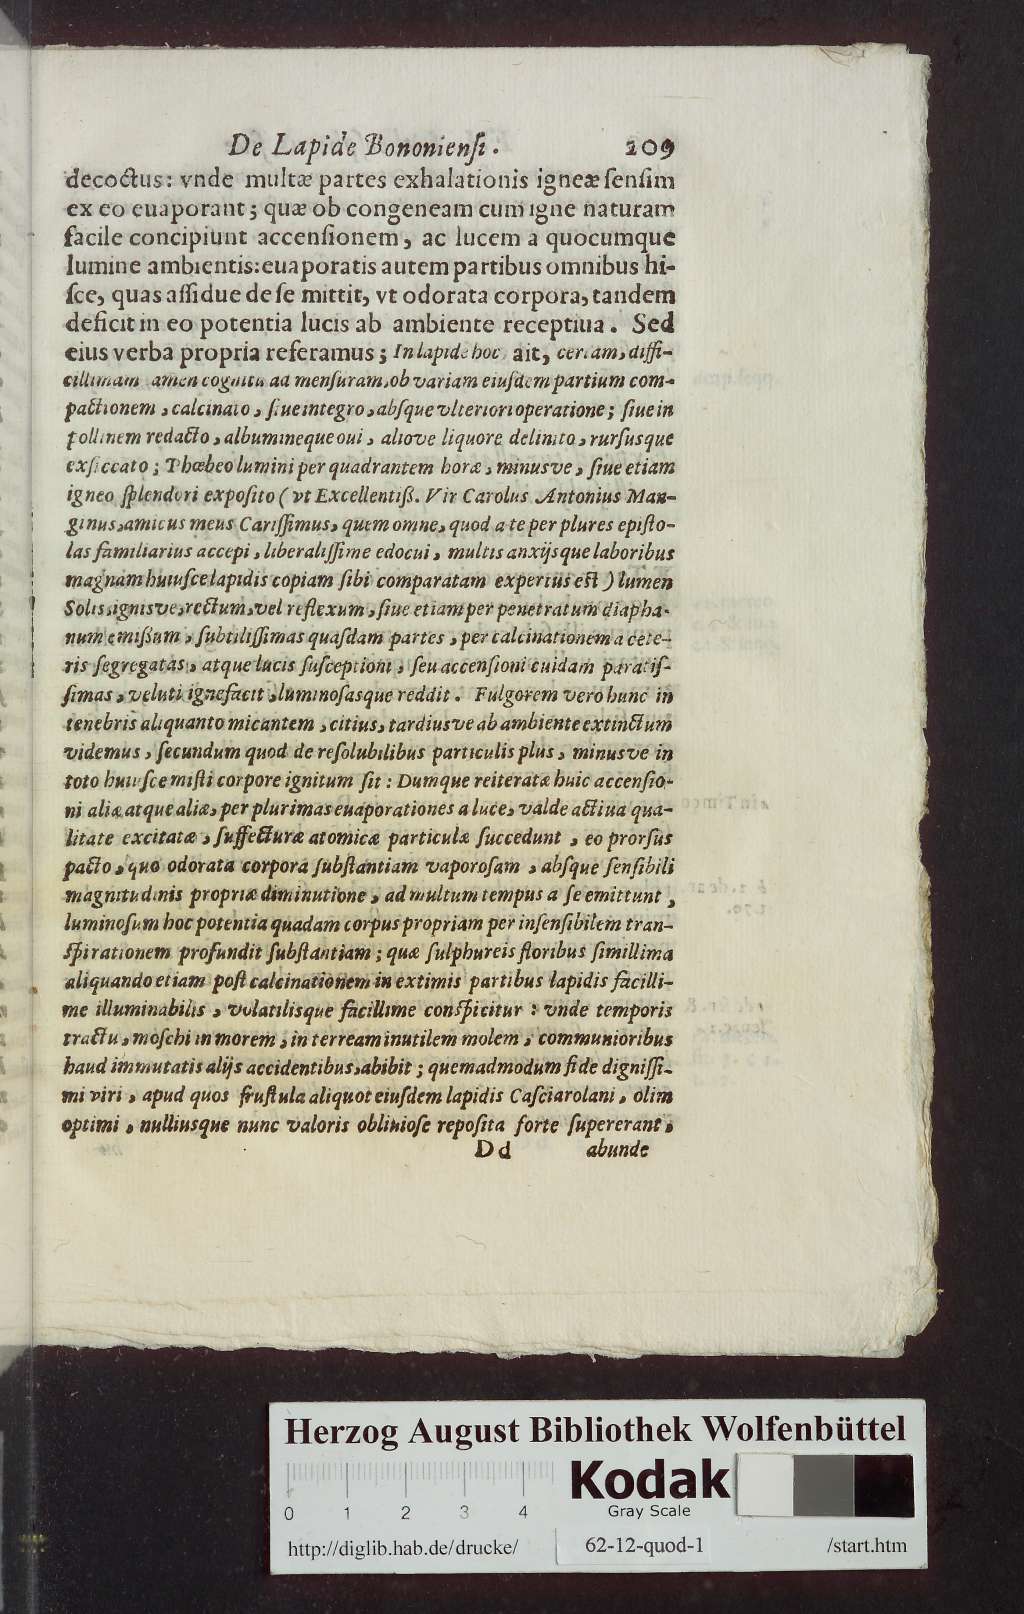 De Lapide Bononiensi. 209
decoctus: vnde multæ partes exhalationis igneæ sensim
ex eo euaporant; quæ ob congeneam cum igne naturam
facile concipiunt accensionem, ac lucem a quocumque
lumine ambientis: euaporatis autem partibus omnibus hi-
sce, quas assidue de se mittit, vt odorata corpora, tandem
deficit in eo potentia lucis ab ambiente receptiua. Sed
eius verba propria referamus; In lapide hoc, ait, certam, diffi-
cillimam tamen cognitu ad mensuram, ob variam eiusdem partium com-
pactionem, calcinato, siue integro, absque vlteriori operatione; siue in
pollinem redacto, albumineque oui, alioue liquore delinito, rursusque
exsiccato; Phœbeo lumini per quadrantem horæ, minusve, siue etiam
igneo splendori exposito (vt Excellentiss. Vir Carolus Antonius Man-
ginus, amicus meus Carissimus, quem omne, quod a te per plures episto-
las familiarius accepi, liberalissime edocui, multis anxijsque laboribus
magnam huiusce lapidis copiam sibi comparatam expertus est) lumen
Solis, ignisve, rectum, vel reflexum, siue etiam per penetratum diapha-
num emissum, subtilissimas quasdam partes, per calcinationem a cete-
ris segregatas, atque lucis susceptioni, seu accensioni cuidam paratis-
simas, veluti ignefacit, luminosasque reddit. Fulgorem vero hunc in
tenebris aliquanto micantem, citius, tardiusve ab ambiente extinctum
videmus, secundum quod de resolubilibus particulis plus, minusve in
toto huiusce misti corpore ignitum sit: Dumque reiteratæ huic accensio-
ni aliæ atque aliæ, per plurimas euaporationes a luce, valde actiua qua-
litate excitatæ, suffecturæ atomicæ particulæ succedunt, eo prorsus
pacto, quo odorata corpora substantiam vaporosam, absque sensibili
magnitudinis propriæ diminutione, ad multum tempus a se emittunt,
luminosum hoc potentia quadam corpus propriam per insensibilem tran-
spirationem profundit substantiam; quæ sulphureis floribus simillima
aliquando etiam post calcinationem in extimis partibus lapidis facilli-
me illuminabilis, volatilisque facillime conspicitur: vnde temporis
tractu, moschi in morem, in terream inutilem molem, communioribus
haud immutatis alijs accidentibus, abibit; quemadmodum fide dignissi-
mi viri, apud quos frustula aliquot eiusdem lapidis Casciarolani, olim
optimi, nulliusque nunc valoris obliuiose reposita forte supererant,
Dd abunde
Herzog August Bibliothek Wolfenbüttel
Kodak
Gray Scale
0 1 2 3 4
http://diglib.hab.de/drucke/ 62-12-quod-1 /start.htm